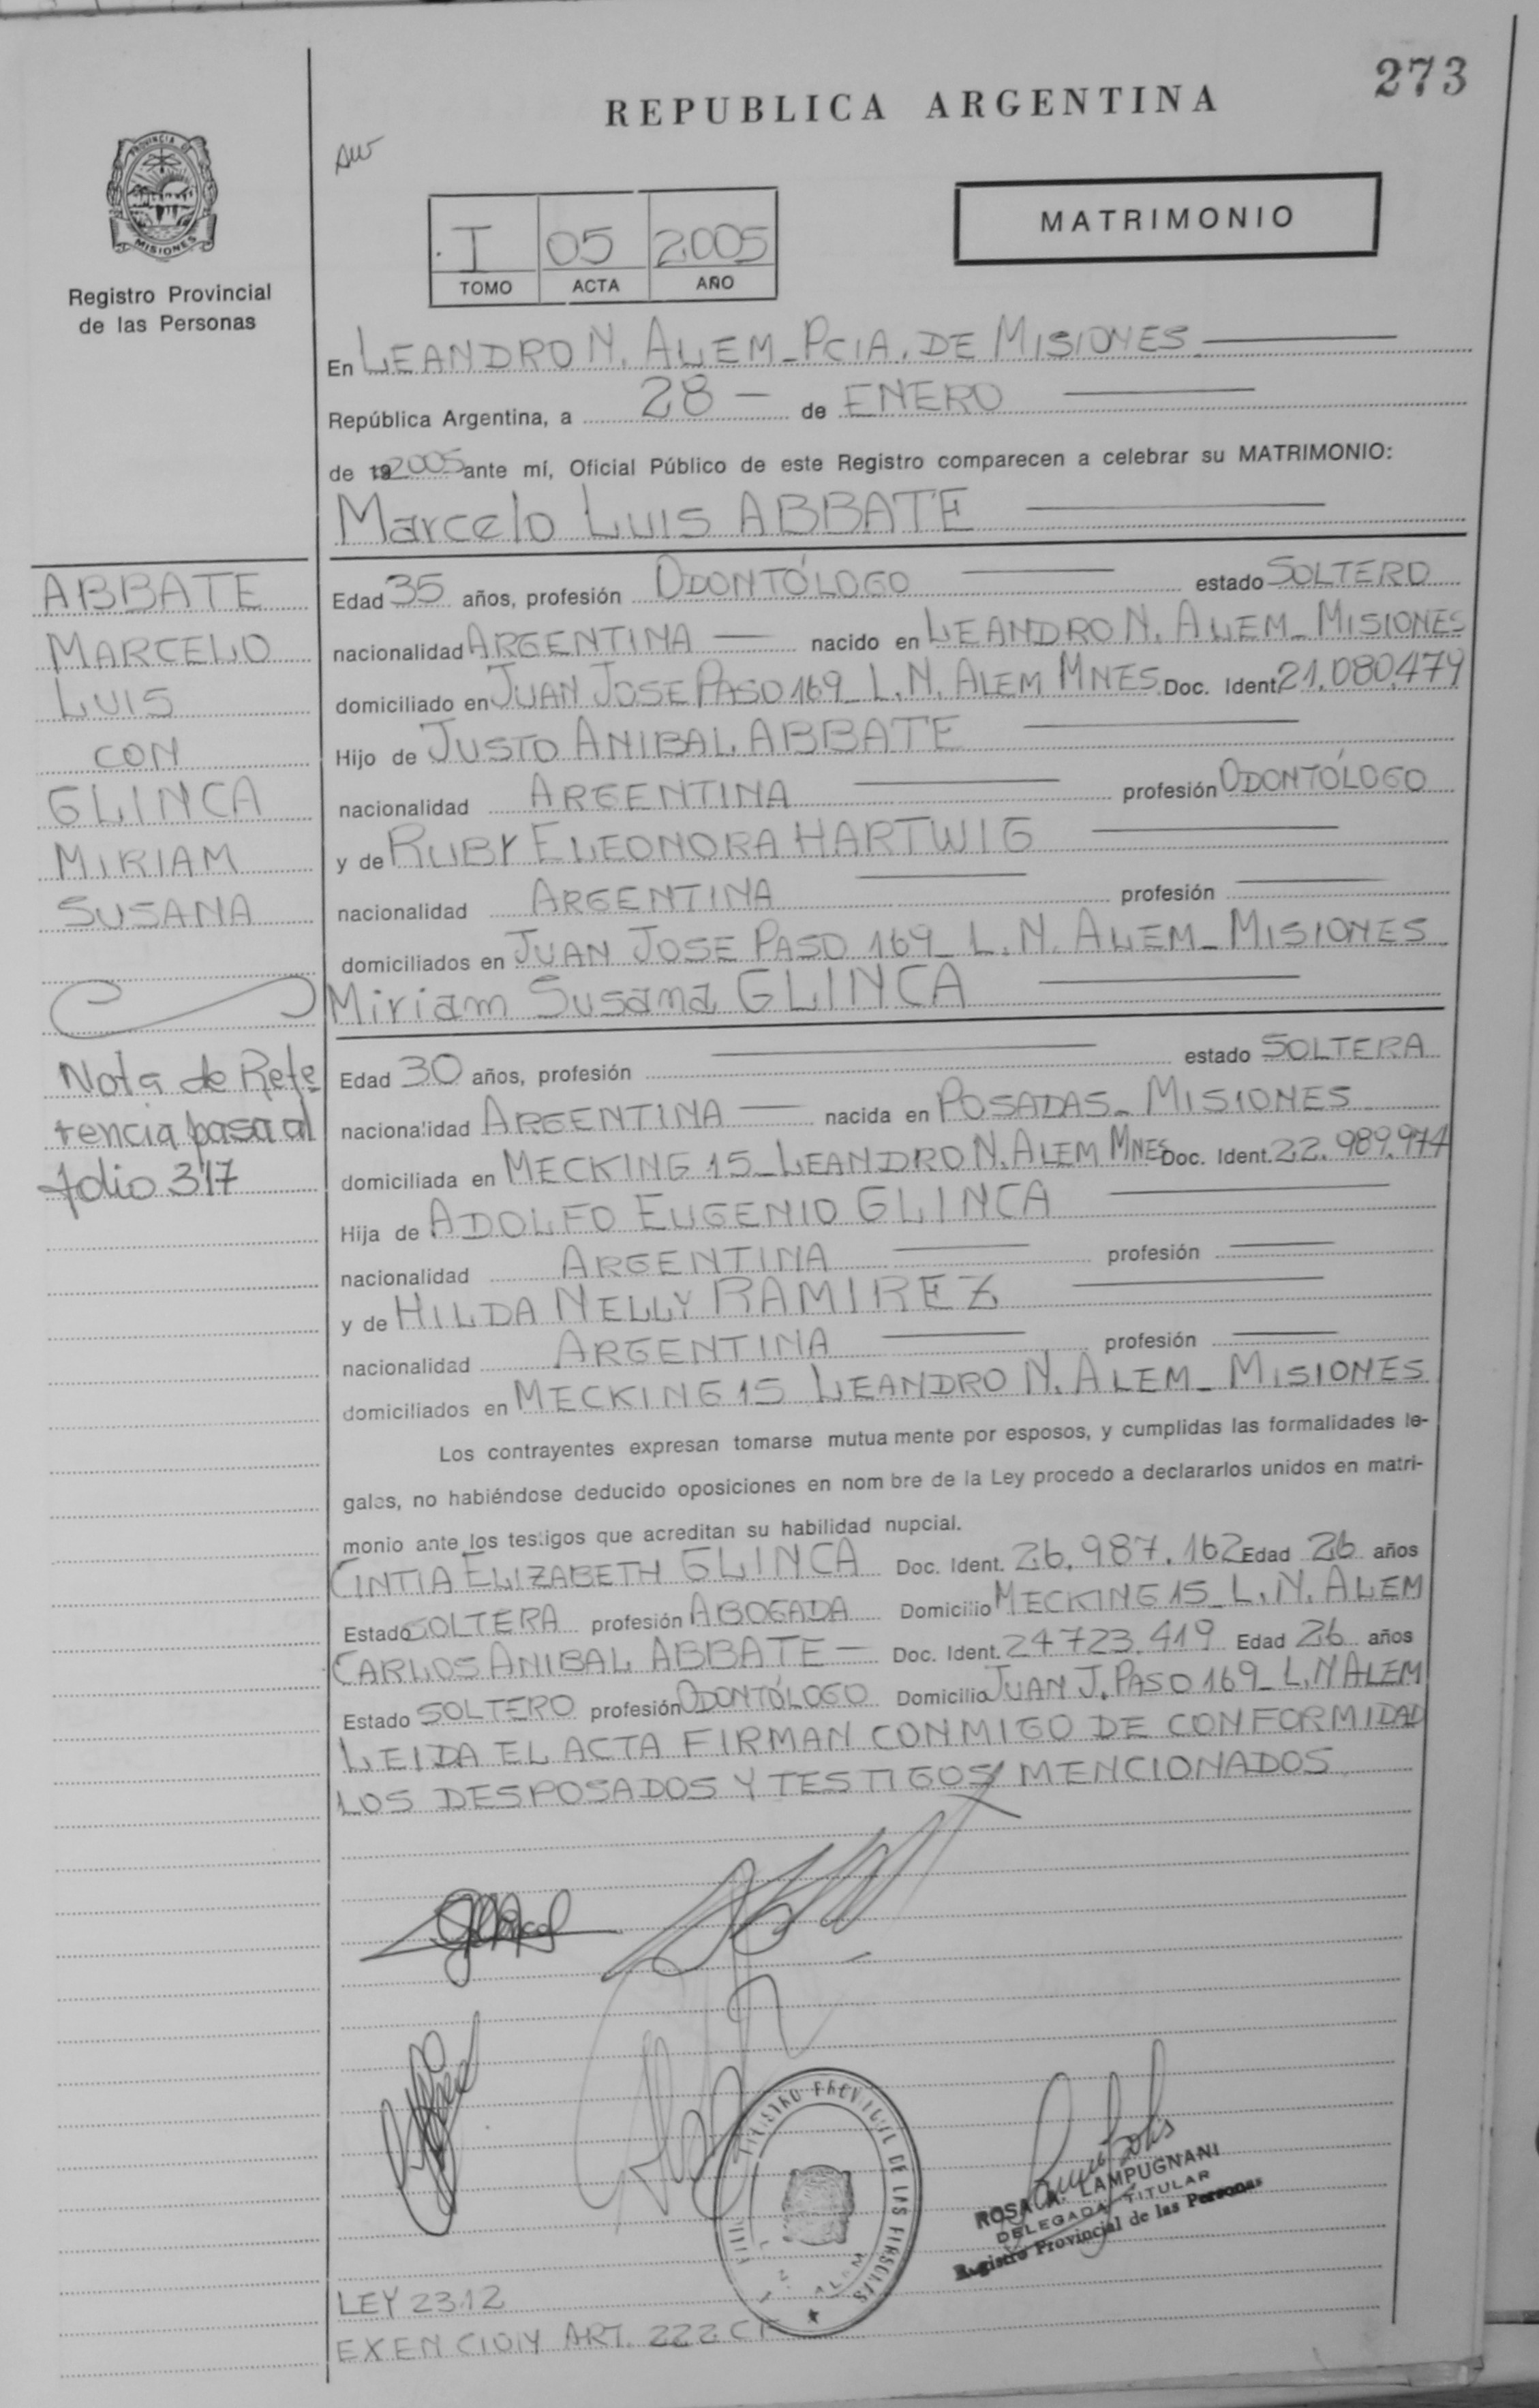 273
REPUBLICA ARGENTINA
PROVINCIA DE
MISIONES
Registro Provincial
de las Personas
MATRIMONIO
I 05 2005
TOMO ACTA AÑO
En LEANDRO N. ALEM_PCIA. DE MISIONES
República Argentina, a 28 - de ENERO
de 192005 ante mí, Oficial Público de este Registro comparecen a celebrar su MATRIMONIO:
Marcelo LUIS ABBATE
ABBATE
MARCELO
LUIS
CON
GLINCA
MIRIAM
SUSANA
Nota de Refe
rencia pasa al
folio 317
Edad 35 años, profesión ODONTÓLOGO estado SOLTERO
nacionalidad ARGENTINA nacido en LEANDRO N. ALEM_MISIONES
domiciliado en JUAN JOSE PASO 169_L.N. ALEM MNES. Doc. Ident. 21.080.479
Hijo de JUSTO ANIBAL ABBATE
nacionalidad ARGENTINA profesión ODONTÓLOGO
y de RUBY ELEONORA HARTWIG
nacionalidad ARGENTINA profesión
domiciliados en JUAN JOSE PASO 169_L.N. ALEM_MISIONES
Miriam Susana GLINCA
Edad 30 años, profesión estado SOLTERA
nacionalidad ARGENTINA nacida en POSADAS_MISIONES
domiciliada en MECKING 15_LEANDRO N. ALEM MNES Doc. Ident. 22.989.974
Hija de ADOLFO EUGENIO GLINCA
nacionalidad ARGENTINA profesión
y de HILDA NELLY RAMIREZ
nacionalidad ARGENTINA profesión
domiciliados en MECKING 15 LEANDRO N. ALEM_MISIONES
Los contrayentes expresan tomarse mutua mente por esposos, y cumplidas las formalidades le-
gales, no habiéndose deducido oposiciones en nom bre de la Ley procedo a declararlos unidos en matri-
monio ante los testigos que acreditan su habilidad nupcial.
CINTIA ELIZABETH GLINCA Doc. Ident. 26.987.162 Edad 26 años
Estado SOLTERA profesión ABOGADA Domicilio MECKING 15_L.N. ALEM
CARLOS ANIBAL ABBATE - Doc. Ident. 24723.419 Edad 26 años
Estado SOLTERO profesión ODONTÓLOGO Domicilio JUAN J. PASO 169_L.N ALEM
LEIDA EL ACTA FIRMAN CONMIGO DE CONFORMIDAD
LOS DESPOSADOS Y TESTIGOS MENCIONADOS.
REGISTRO PROVINCIAL DE LAS PERSONAS
ROSA A. LAMPUGNANI
DELEGADA TITULAR
Registro Provincial de las Personas
LEY 23.12
EXENCION ART. 222 C